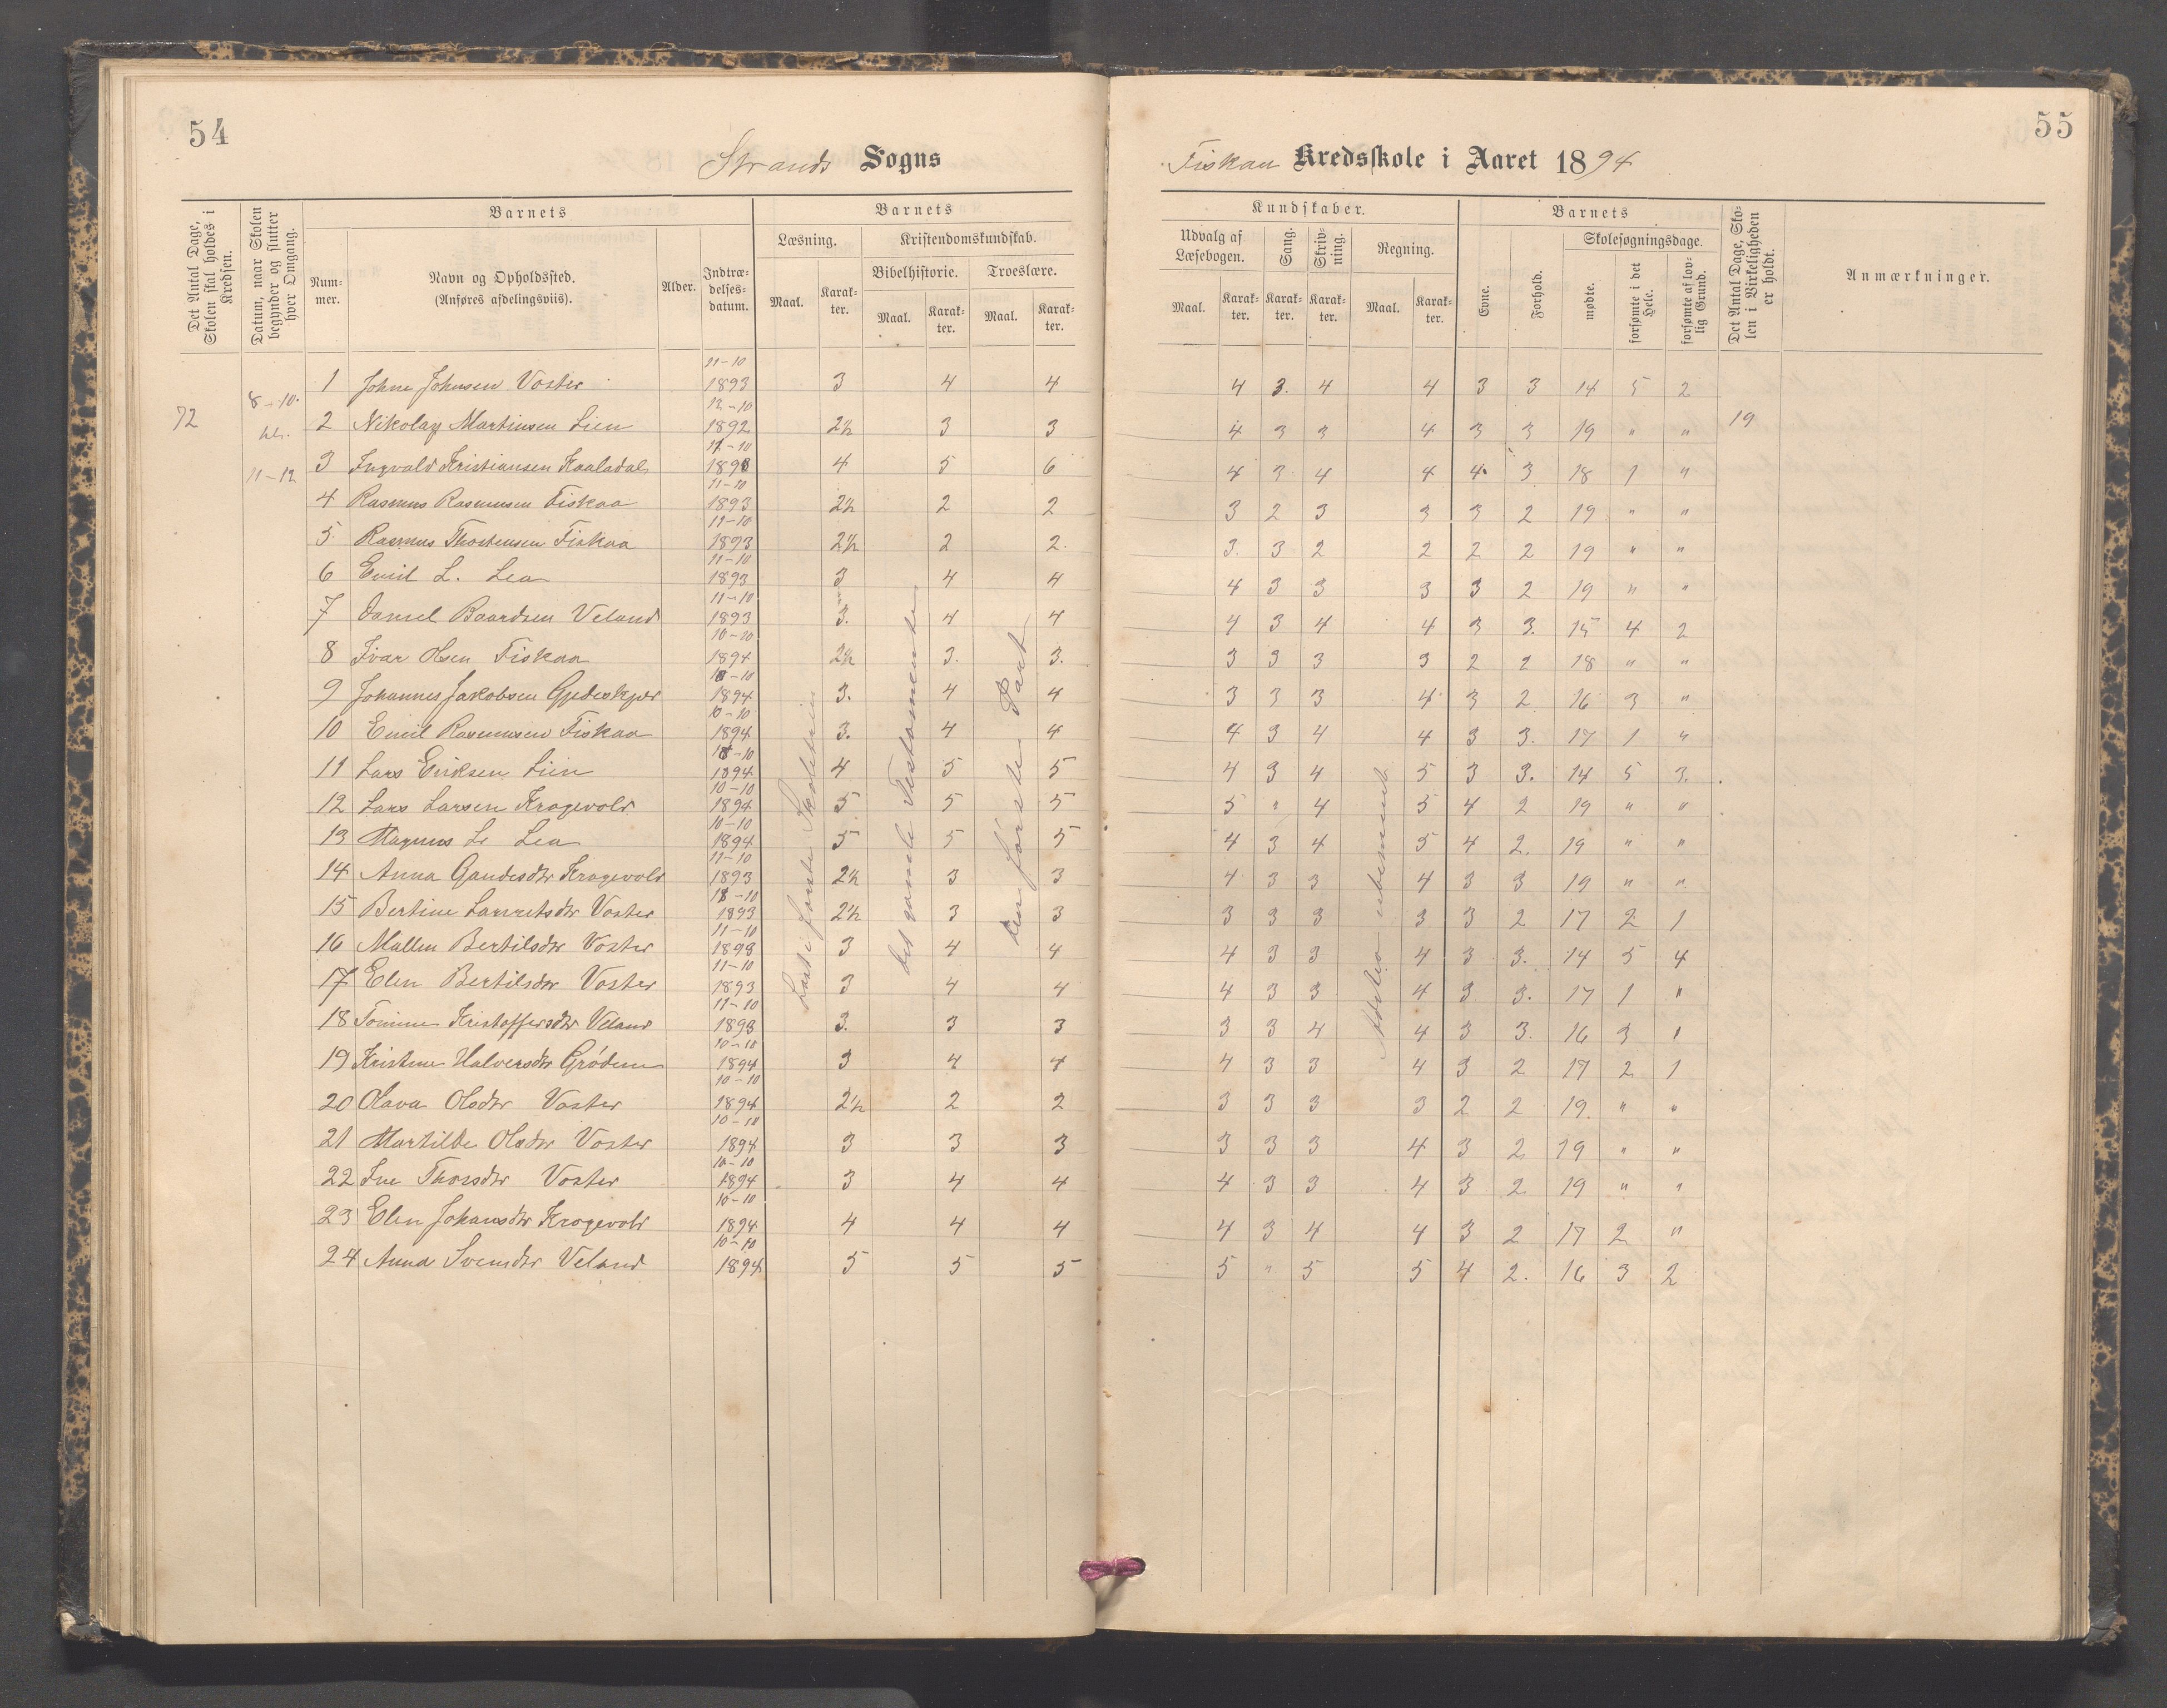 54
Strands Sogns
Det Antal Dage, Skolen skal holdes i Kredsen.
Datum, naar Skolen begynder og slutter hver Omgang.
Barnets
Num-mer.
Navn og Opholdssted.
(Anføres afdelingsviis).
Alder.
Indtræ-delses-datum.
Barnets
Læsning.
Maal.
Karak-ter.
Kristendomskundskab.
Bibelhistorie.
Maal.
Karak-ter.
Troeslære.
Maal.
Karak-ter.
72
8-10.
11-12
1 Johne Johnsen Voster 11-10 1893 3 4 4
2 Nikolay Martinsen Lien 12-10 1892 2½ 3 3
3 Ingvald Kristiansen Kaaladal 11-10 1893 4 5 6
4 Rasmus Rasmussen Fiskaa 11-10 1893 2½ 2 2
5 Rasmus Thostensen Fiskaa 11-10 1893 2½ 2 2.
6 Emil L. Lea 11-10 1893 3 4 4
7 Daniel Baardsen Veland 11-10 1893 3. 4 4
8 Ivar Olsen Fiskaa 10-10 1894 2½ 3. 3.
9 Johannes Jakobsen Gjedeskjær 10-10 1894 3. 4 4
10 Emil Rasmussen Fiskaa 10-10 1894 3. 4 4
11 Lars Eriksen Lien 10-10 1894 4 5 5
12 Lars Larsen Krogevold 10-10 1894 5 5 5
13 Magnus L. Lea 10-10 1894 5 5 5
14 Anna Gaudesdtr Krogevold 11-10 1893 2½ 3 3
15 Bertine Lauretsdtr Voster 11-10 1893 2½ 3 3
16 Mallin Bertilsdtr Voster 11-10 1893 3 4 4
17 Elen Bertilsdtr Voster 11-10 1893 3 4 4
18 Tomine Kristoffersdtr Veland 11-10 1893 3. 3 3
19 Kristine Halversdtr Grödem 10-10 1894 3 4 4
20 Olava Olsdtr Voster 10-10 1894 2½ 2 2
21 Martilde Olsdtr Voster 10-10 1894 3 3 3
22 Ine Thorsdtr Voster 10-10 1894 3 4 4
23 Elen Johansdtr Krogevold 10-10 1894 4 4 4
24 Anna Svensdtr Veland 10-10 1894 5 5 5
Læst i første
det gamle Testamente
den første Part
55
Fiskaa Kredsskole i Aaret 1894
Kundskaber.
Udvalg af Læsebogen.
Maal.
Karak-ter.
Sang.
Karak-ter.
Skriv-ning.
Karak-ter.
Regning.
Maal.
Karak-ter.
Barnets
Evne.
Forhold.
Skolesøgningsdage.
mødte.
forsømte i det Hele.
forsømte af lov-lig Grund.
Det Antal Dage, Sko-len i Virkeligheden er holdt.
Anmærkninger.
4 3. 4 4 3 3 14 5 2
19
4 3 3 4 3 3 19 " "
4 3 4 4 4 3 18 1 "
3 2 3 3 3 2 19 " "
3. 3 2 2 2 2 19 " "
4 3 3 3 3 2 19 " "
4 3 4 4 3 3. 15 4 2
3 3 3 3 2 2 18 " "
3 3 3 4 3 2 16 3 "
4 3 4 4 3 3. 17 1 "
4 3 4 5 3 3. 14 5 3.
5 " 4 5 4 2 19 " "
4 3 4 5 4 2. 19 " "
4 3 3 4 3 3 19 " "
3 3 3 3 3 2 17 2 1
4 3 3 4 3 3. 14 5 4
4 3 3 4 3 3. 17 1 "
3 3 4 4 3 3. 16 3 1
4 3 3 4 3 2 17 2 1
3 3 3 3 2 2 19. " "
3 3 3 4 3 2 19 " "
4 3 3 4 3 2 19 " "
4 3 4 4 3 2 17 2 "
5 " 5 5 4 2. 16 3 2
ubenævnt